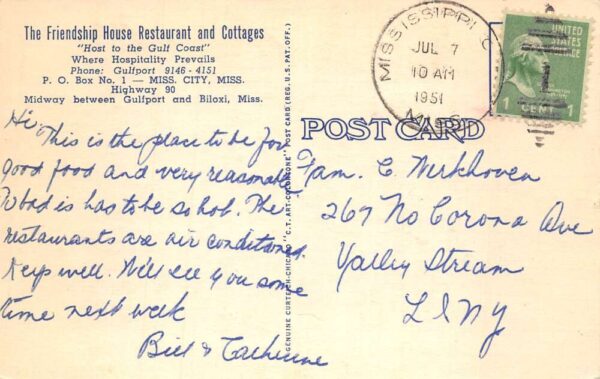 The Friendship House Restaurant and Cottages
"Host to the Gulf Coast"
Where Hospitality Prevails
Phone: Gulfport 9146 - 4151
P. O. Box No. 1 — MISS. CITY, MISS.
Highway 90
Midway between Gulfport and Biloxi, Miss.
Hi, This is the place to be for
good food and very reasonable
To bad is has to be so hot. The
restaurants are air conditioned.
Keep well. Will see you some
time next week
Bill & Catherine
GENUINE CURTEICH-CHICAGO "C.T. ART-COLORTONE" POST CARD (REG. U.S. PAT. OFF.)
MISSISSIPPI C
JUL 7
10 AM
1951
MISS.
UNITED
STATES
1 CENT
POST CARD
Fam. C. Werkhoven
267 No Corona Ave
Valley Stream
L I N Y